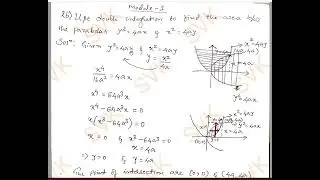 Module-3
26) Use double integration to find the area b/w
the parabolas y²=4ax & x²=4ay
Solⁿ: Given y²=4ax & x²=4ay
y = x²/4a
x⁴/16a² = 4ax
x⁴ = 64a³x
x⁴-64a³x = 0
x(x³-64a³) = 0
x = 0 & x³-64a³ = 0
x = 4a
⇒ y=0 & y = 4a
The point of intersection are (0,0) & (4a,4a)